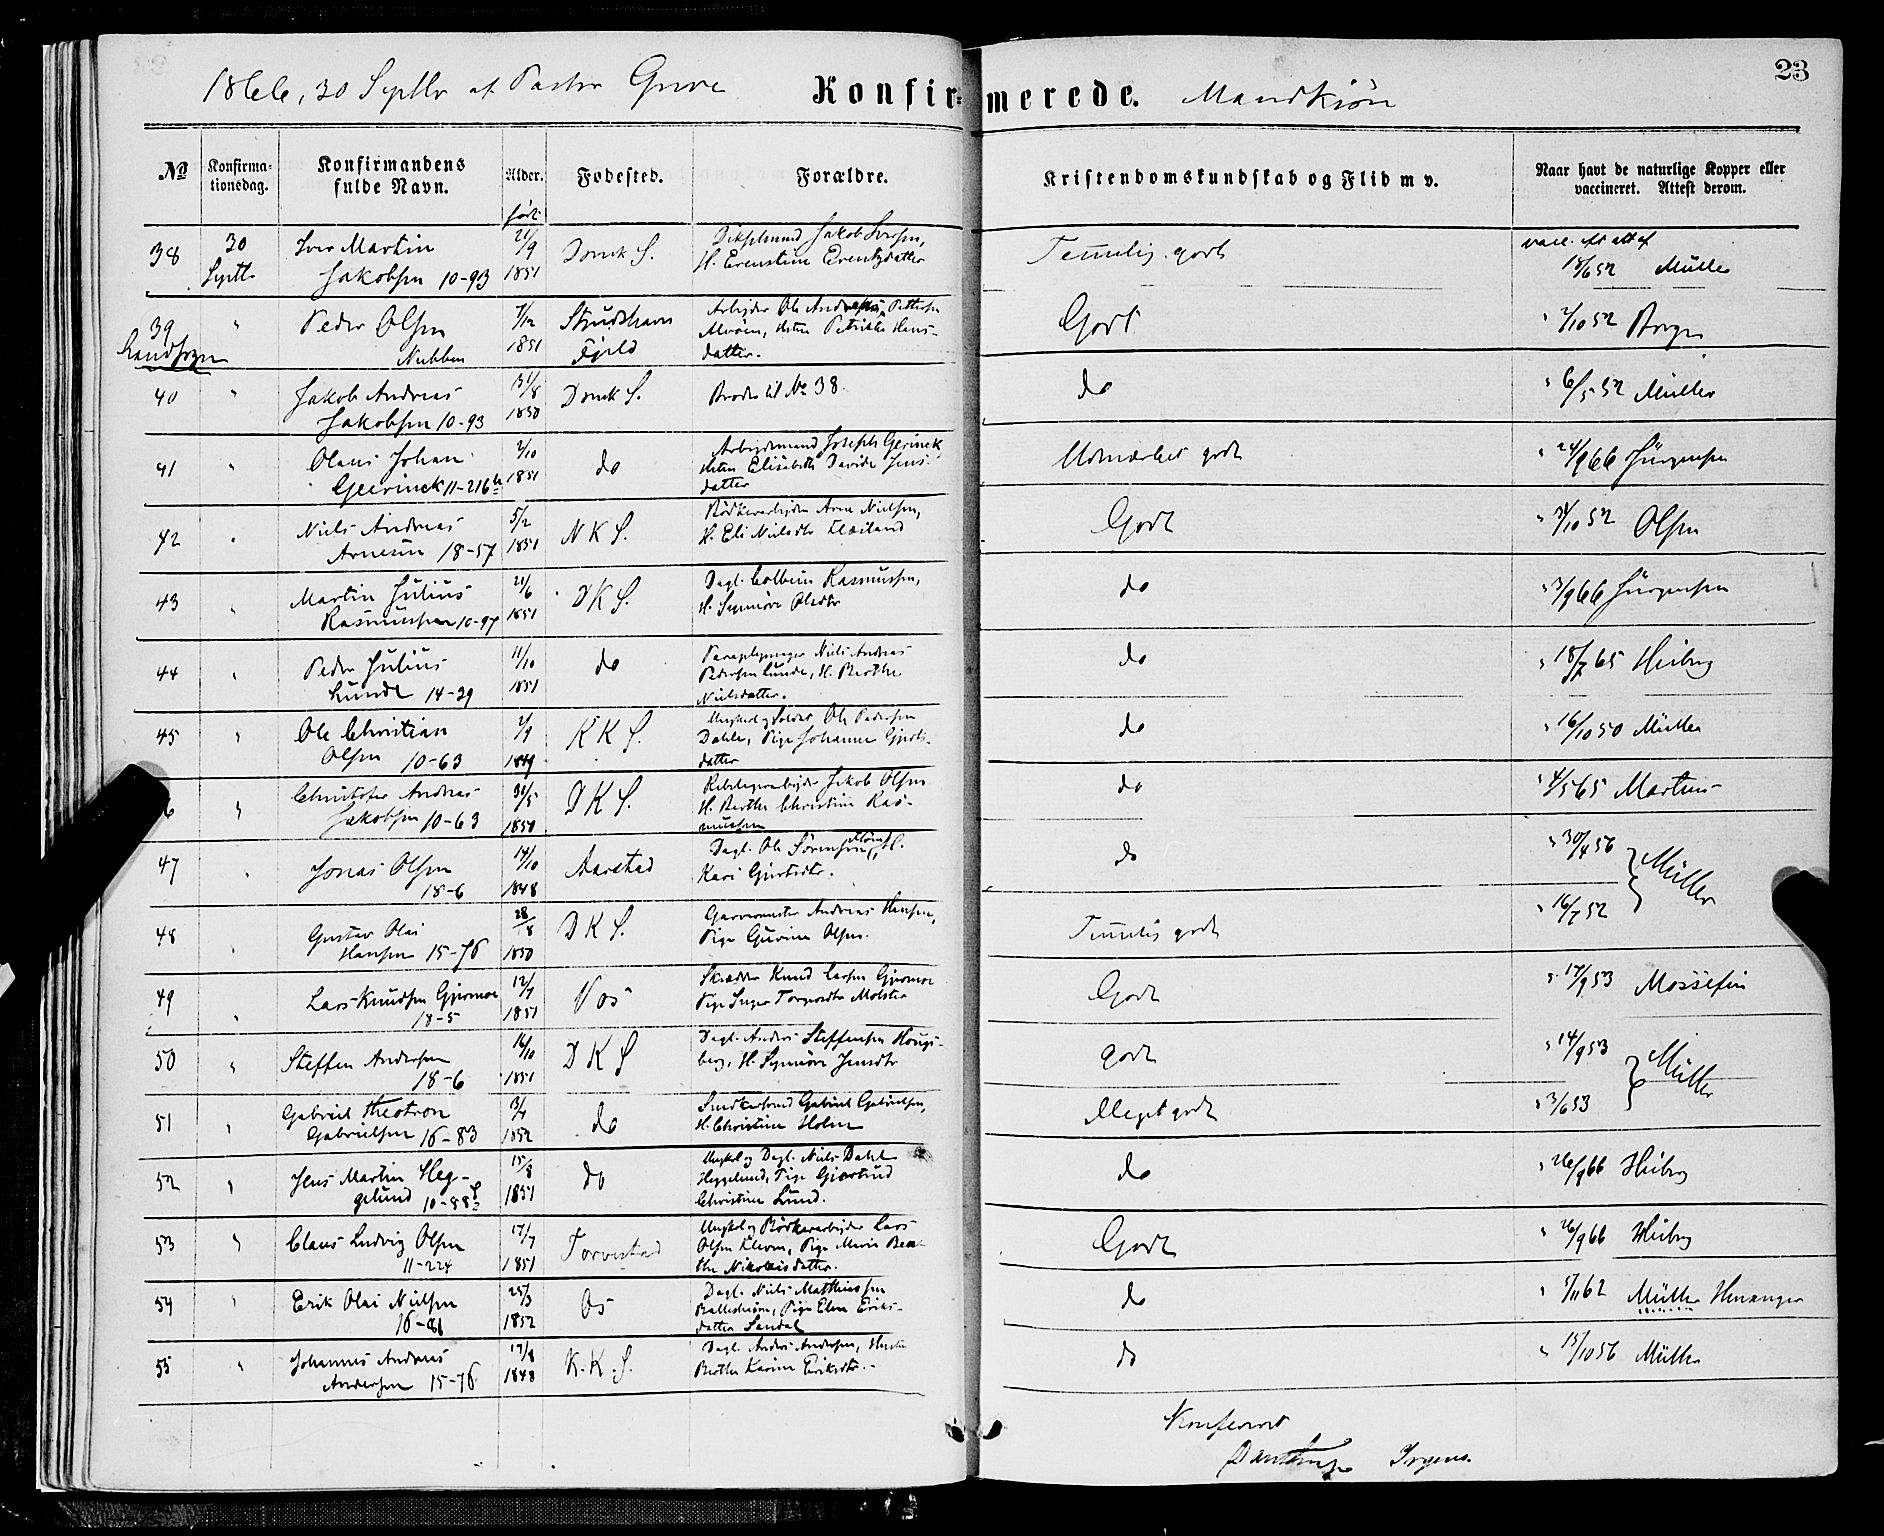 1866, 30 Septbr af Pastor Greve Konfirmerede. Mandkjøn 23
No Konfirmationsdag. Konfirmandens fulde Navn. Alder. Fødested. Forældre. Kristendomskundskab og Flid m v. Naar havt de naturlige Kopper eller vaccineret. Attest derom.
født
38 30 Septb Iver Martin Jakobsen 10-93 21/9 1851 Domk S. Jakob Iversen, H. Erenstine Erentzdatter Temmelig godt vacc. att af 18/6 52 Müller
39 Landsogn " Peder Olsen Nubben 7/12 1851 Strudshavn Fjeld Arbejder Ole Andreas Pettersen Hansdatter. Godt " 2/10 52
40 " Jakob Andreas Jakobsen 10-93 31/8 1850 Domk S. Broder til No 38. do " 6/5 52 Müller
41 " Olaus Johan Geerinck 11-216 2/10 1851 do Arbejdsmand Joseph Gerinck Elisabeth Davida Jensdatter Udmærket godt " 24/9 66 Jürgensen
42 " Niels Andreas Arnesen 18-57 5/2 1851 N K S. Bødkerarbejder Arne Nielsen, H. Eli Nielsdtr Godt " 21/10 52 Olsen
43 " Martin Julius Rasmussen 10-97 21/6 1851 D K S. Dagl. Colbein Rasmussen, H. Synnøve Olsdtr do " 3/9 66 Jürgensen
44 " Peder Julius Lunde 14-29 11/10 1851 do Niels Andreas Pedersen Lunde, H. Berthe Nielsdatter. do " 18/7 65 Heiberg
45 " Ole Christian Olsen 10-63 2/9 1849 K K S. Ungkarl og Soldat Ole Pedersen Dahle, Pige Johanne datter do " 16/10 50 Müller
6 " Christofer Andreas Jakobsen 10-63 31/5 1850 D K S. Jakob Olsen H. Berthe Christine Rasmussen do " 4/5 65 Martens
47 " Jonas Olsen 18-6 14/10 1848 Aarstad Dagl. Ole Sørensen, H. Kari do " 30/4 56 Müller
48 " Gustav Olai Hansen 15-76 28/8 1850 D K S. Garvermester Andreas Hansen, Pige Gurine Olsen. Temmelig godt " 16/7 52
49 " Lars Knudsen Gjermoe 18-5 12/7 1851 Vos Skrædder Knud Larsen Gjermoe Pige Inger Torgersdtr Molster Godt " 17/9 53 Mossefin
50 " Steffen Andersen 18-6 16/10 1851 D K S Dagl. Anders Steffensen Hougsberg, H. Synnøve Jensdtr godt " 14/9 53 Müller
51 " Gabriel Theotron Gabrielsen 16-83 13/4 1852 do Gabriel Gabrielsen, H. Christine Holm Meget godt " 3/6 53
52 " Jens Martin Heggelund 10-88 15/8 1851 do Ungkl og Dagl. Niels Dahl Heggelund, Pige Gjertrud Christine Lund. do " 26/9 66 Heiberg
53 " Claus Ludvig Olsen 11-224 17/7 1851 Torvestad Ungkl og Bødkerarbejder Lars Olsen Kleven, Pige Maria Beathe Nikolaisdatter. Godt " 26/9 66 Heiberg
54 " Erik Olai Nielsen 16-81 25/3 1852 Os Dagl. Niels Matthiassen Pige Elen Eriksdatter Sandal do " 5/11 62 Müller
55 " Johannes Andreas Andersen 15-76 17/8 1848 K. K. S. Dagl. Anders Andersen, Hustru Berthe Karine Eriksdtr. do " 15/10 56 Müller
Konfereret
Irgens.